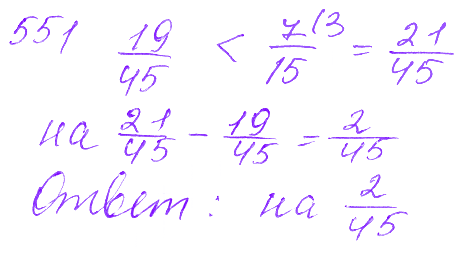 551 19/45 < 7/15 (3 = 21/45
на 21/45 - 19/45 = 2/45
Ответ: на 2/45